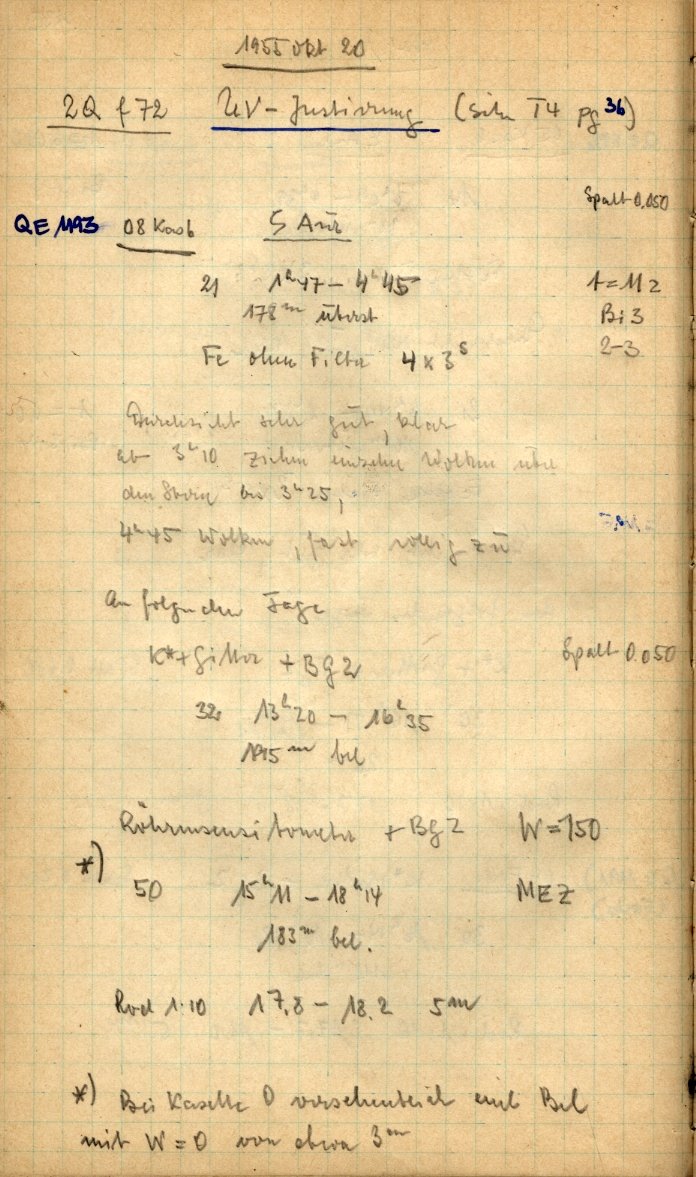 1955 Okt 20
2Q f 72 UV-Justierung (siehe T4 pg 36)
Spalt 0,050
QE 1193 08 Kaob ζ Aur
21 1ʰ47 – 4ʰ45 t = 112
178ᵐ überst Bi 3
Fe ohne Filter 4 x 3ˢ 2-3
Durchsicht sehr gut, klar
ab 3ʰ10 ziehen einzelne Wolken über
den Stern bis 3ʰ25,
4ʰ45 Wolken, fast völlig zu
Am folgenden Tage
K*+Gitter + BG2 Spalt 0.050
32 13ʰ20 – 16ʰ35
195ᵐ bel
Röhrensensitometer + BG2 W=150
*)
50 15ʰ11 – 18ʰ14 MEZ
183ᵐ bel.
Rod 1:10 17,8 – 18.2 5ᵐ
*) Bei Kasette D versehentlich erst Bel
mit W=0 von etwa 3ᵐ